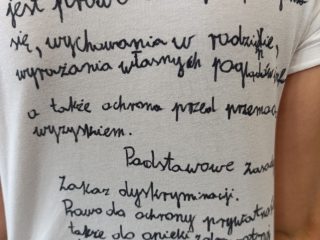 jest prawo
się, wychowania w rodzinie,
wyrażania własnych poglądów i
a także ochrona przed przemocą
wyzyskiem.
Podstawowe zasady
Zakaz dyskryminacji.
Prawo do ochrony prywatności
także do opieki zdrowotnej